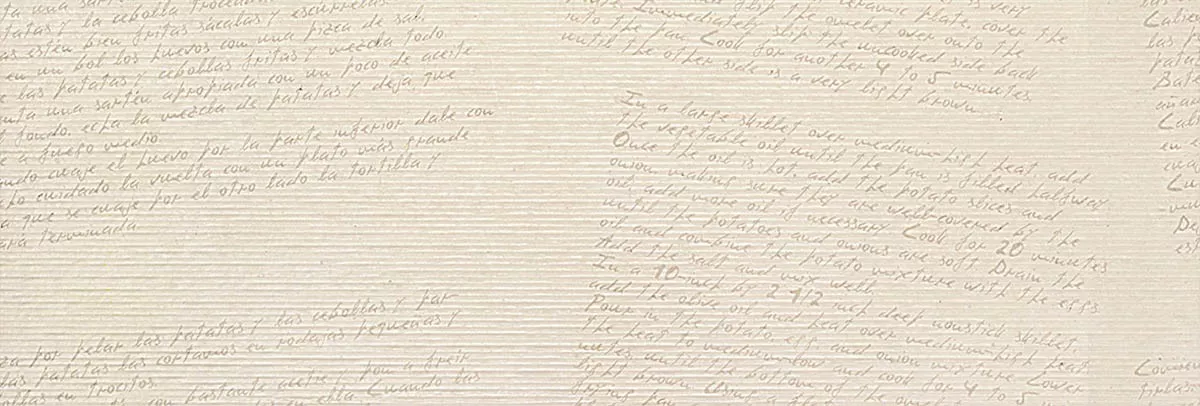 ta una
patatas y la cebolla
as estén bien fritas sácalas y escúrrelas
en un bol los huevos con una pizca de sal.
e las patatas y cebollas fritas y mezcla todo.
nta una sartén apropiada con un poco de aceite
l fondo, echa la mezcla de patatas y deja que
e a fuego medio.
ando cuaje el huevo por la parte inferior dale con
cho cuidado la vuelta con un plato más grande
a que se cuaje por el otro lado la tortilla y
ará terminada.
za por pelar las patatas y las cebollas, y par
las patatas las cortamos en rodajas pequeñas y
bollas en trocitos.
con bastante aceite y pon a freír
en ella. Cuando las
is very
flip the omelet over onto the
ceramic plate, cover the
Plate. Immediately slip the uncooked side back
into the pan. Cook for another 4 to 5 minutes
until the other side is a very light brown.
In a large skillet over medium-high heat, add
the vegetable oil until the pan is filled halfway
Once the oil is hot, add the potato slices and
onion making sure they are well-covered by the
oil, add more oil if necessary. Cook for 20 minutes
until the potatoes and onions are soft. Drain the
oil and combine the potato mixture with the eggs
Add the salt and mix well.
In a 10-inch by 2 1/2 inch deep nonstick skillet
add the olive oil and heat over medium-high heat
Pour in the potato, egg, and onion mixture. Lower
the heat to medium-low and cook for 4 to 5
nutes, until the bottom of the
light brown. Using a
frying pan
las pa
patat
Bat
añad
Cali
en e
cua
Cu
De
est